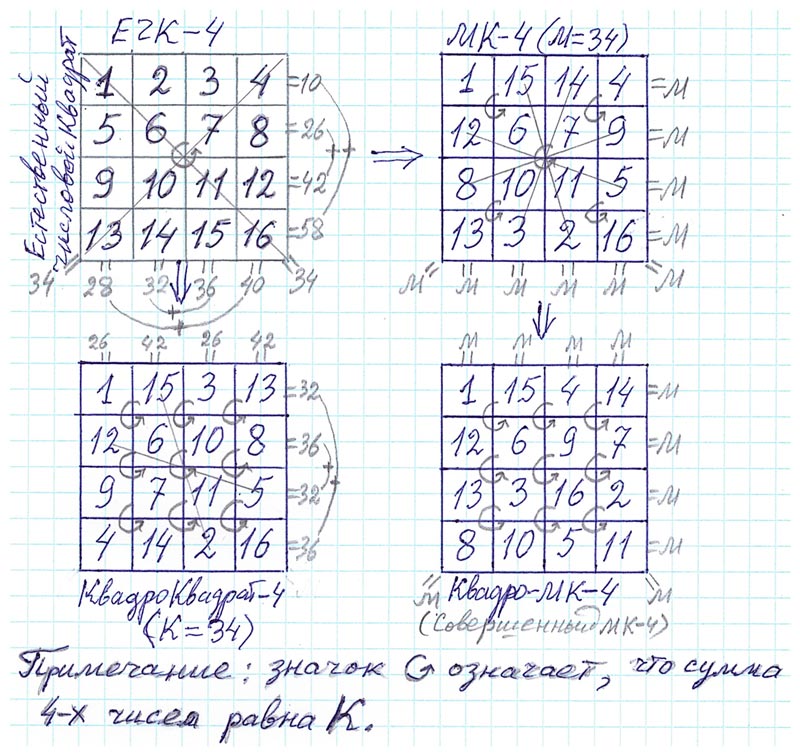 ЕЧК-4
МК-4 (М=34)
Естественный
числовой квадрат
1 2 3 4 =10
5 6 7 8 =26
9 10 11 12 =42
13 14 15 16 =58
+ +
34 28 32 36 40 34
+
+
1 15 14 4 =М
12 6 7 9 =М
8 10 11 5 =М
13 3 2 16 =М
М М М М М М
26 42 26 42
1 15 3 13 =32
12 6 10 8 =36
9 7 11 5 =32
4 14 2 16 =36
+
+
КвадроКвадрат-4
(К=34)
М М М М
1 15 4 14 =М
12 6 9 7 =М
13 3 16 2 =М
8 10 5 11 =М
М Квадро-МК-4 М
(Совершенный МК-4)
Примечание: значок означает, что сумма
4-х чисел равна К.